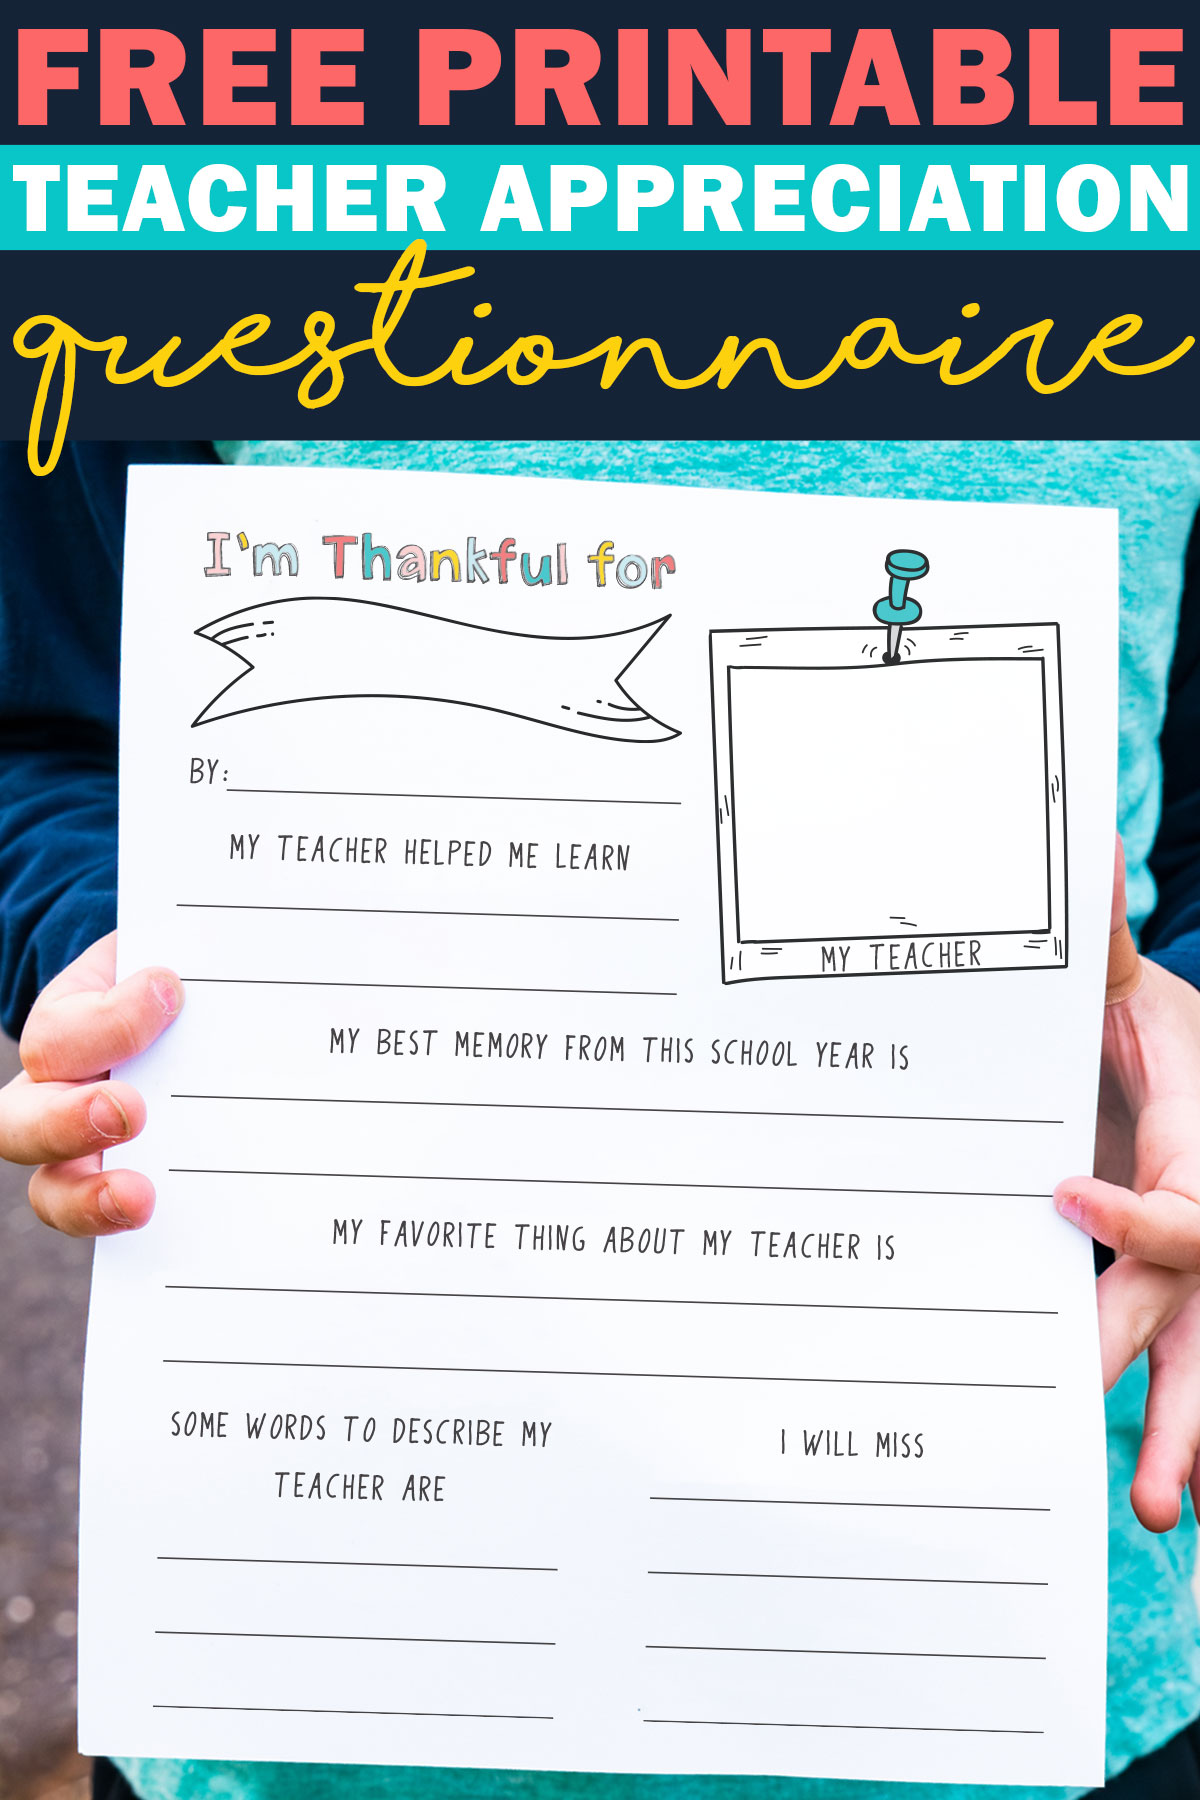 FREE PRINTABLE
TEACHER APPRECIATION
questionnaire
I'm Thankful for
BY:
MY TEACHER HELPED ME LEARN
MY TEACHER
MY BEST MEMORY FROM THIS SCHOOL YEAR IS
MY FAVORITE THING ABOUT MY TEACHER IS
SOME WORDS TO DESCRIBE MY
TEACHER ARE
I WILL MISS